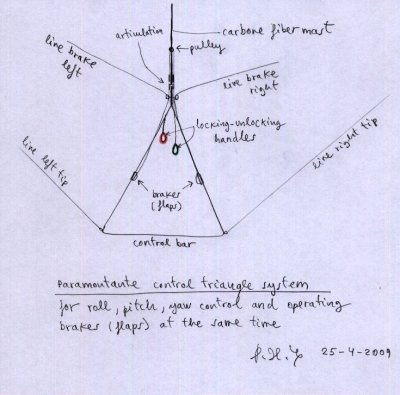 carbone fiber mast
articulation
pulley
line brake
left
line brake
right
locking-unlocking
handles
line left tip
line right tip
brakes
(flaps)
control bar
Paramontante control triangle system
for roll, pitch, yaw control and operating
brakes (flaps) at the same time
25-4-2009